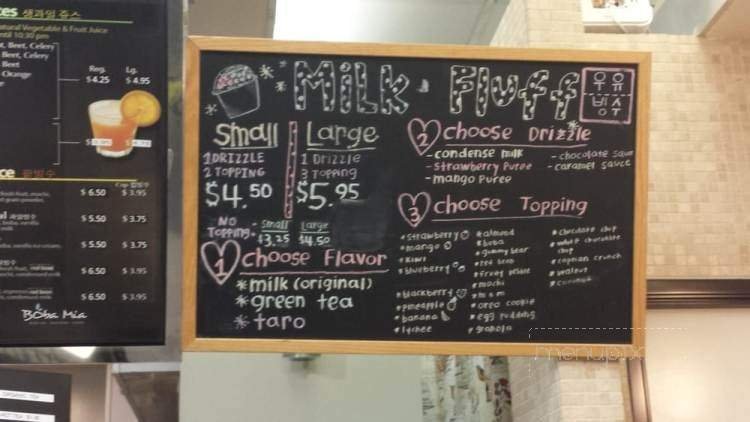 생과일 쥬스
Natural Vegetable & Fruit Juice
until 10:30 pm
Beet, Celery
Beet, Celery
Orange
Reg. Lg.
$4.25 $4.95
팥빙수
$ 6.50 $ 3.95
$ 5.50 $ 3.75
$ 5.50 $ 3.75
$ 6.50 $ 3.95
$ 6.50 $ 3.95
Boba Mia
Milk Fluff
우유
빙수
Small
1 DRIZZLE
2 TOPPING
$4.50
Large
1 Drizzle
3 Topping
$5.95
NO
Topping
- Small Large
$3.25 $4.50
1 Choose Flavor
*milk (original)
*green tea
*taro
2 choose Drizzle
- condense milk
- strawberry Puree
- mango Puree
- chocolate
- caramel sauce
3 choose Topping
*strawberry
*mango
*kiwi
*blueberry
*blackberry
*pineapple
*banana
*lychee
*almond
*boba
*gummy bear
*red bean
*fruity pebble
*mochi
*m&m
*oreo cookie
*egg pudding
*granola
*chocolate chip
*white chocolate
chip
*captain crunch
*walnut
*coconut
menupix